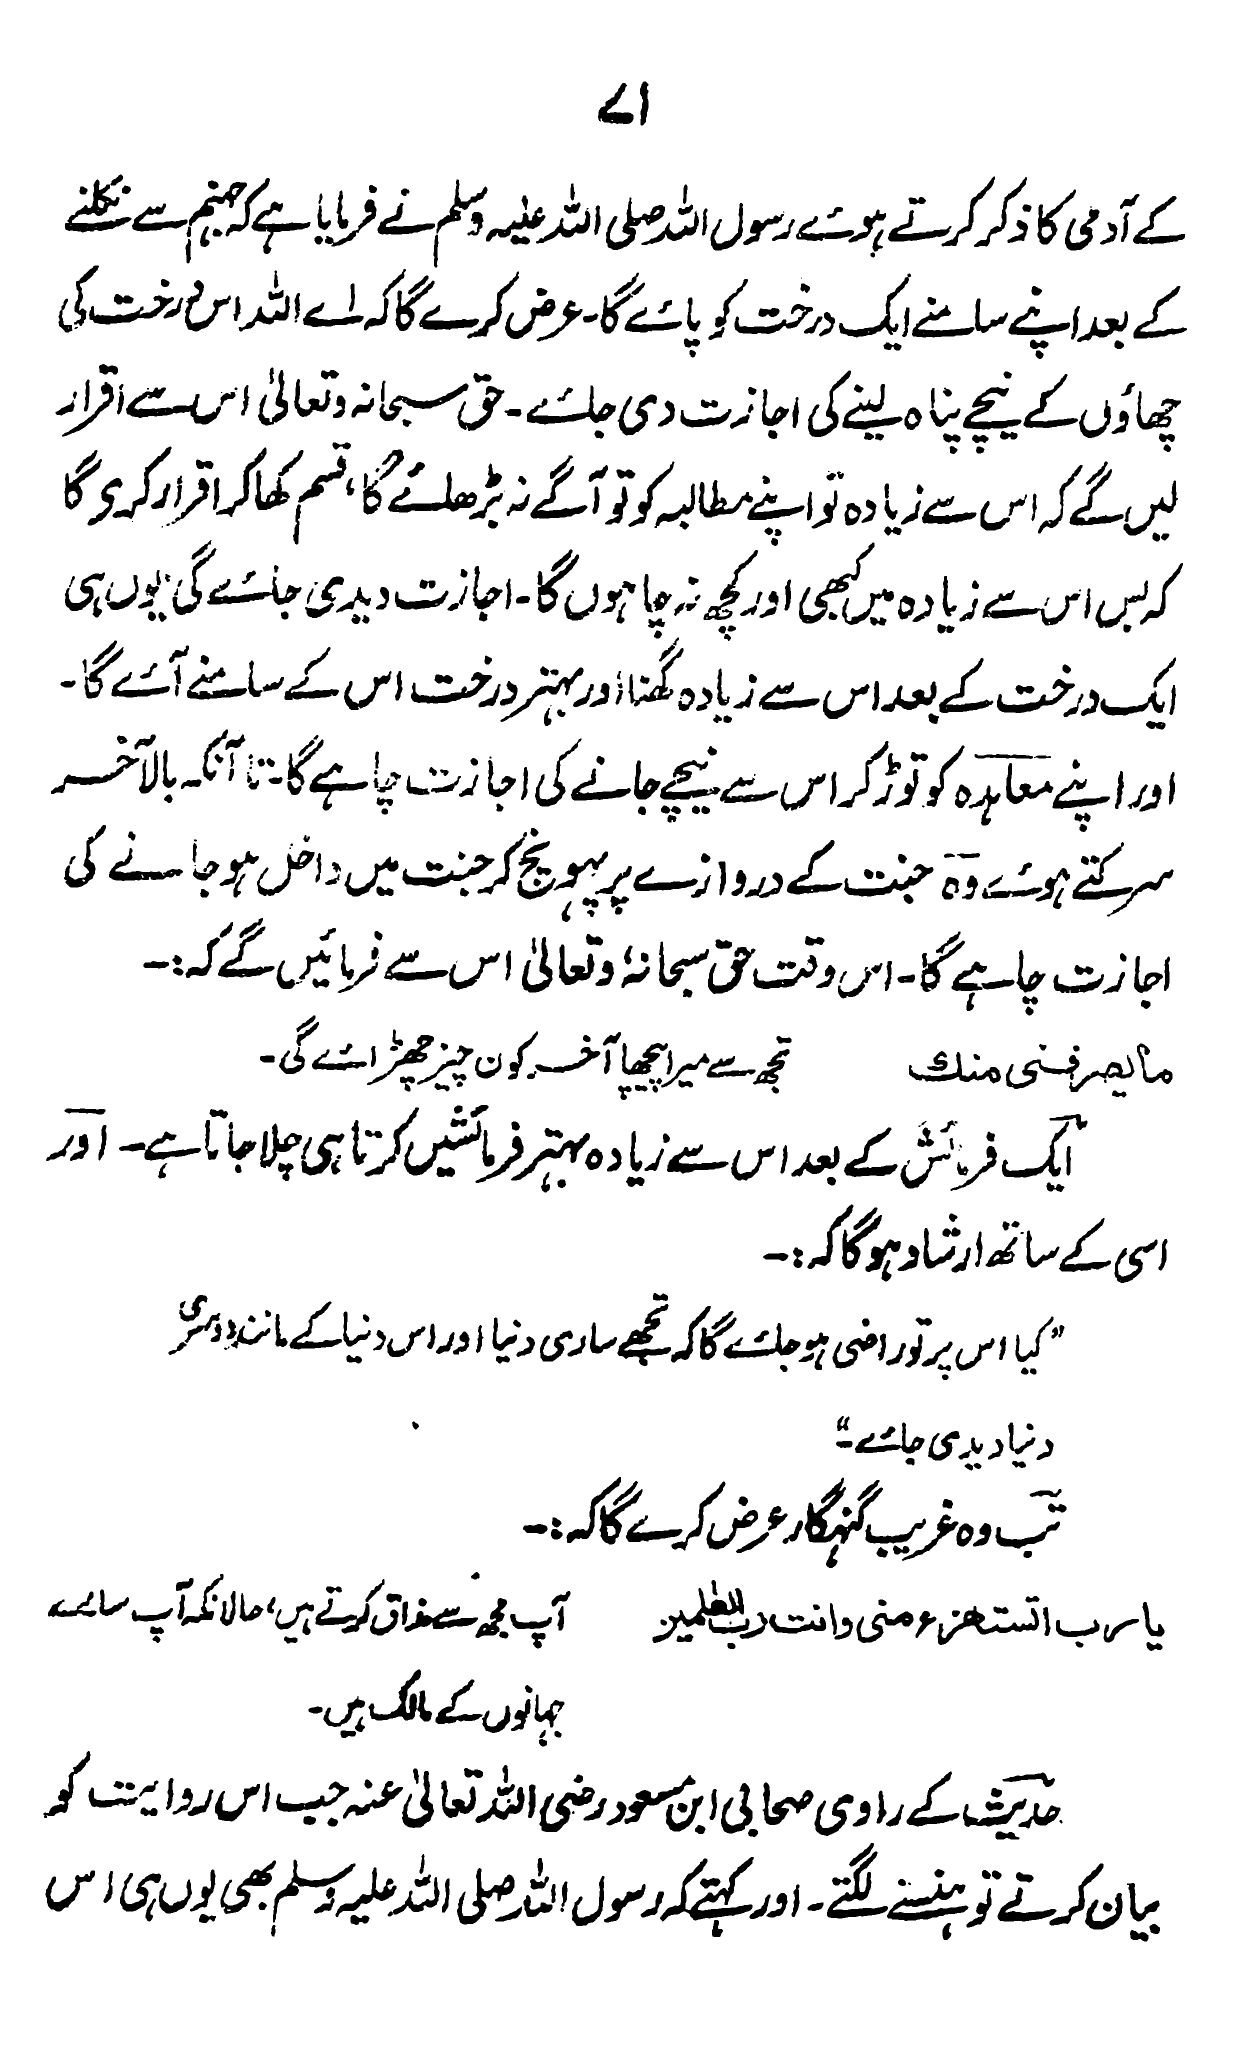 ۷۱
کے آدمی کا ذکر کرتے ہوئے رسول اللہ صلی اللہ علیہ وسلم نے فرمایا ہے کہ جہنم سے نکلنے
کے بعد اپنے سامنے ایک درخت کو پائے گا۔ عرض کرے گا کہ اے اللہ اس درخت کی
چھاؤں کے نیچے پناہ لینے کی اجازت دی جائے۔ حق سبحانہ وتعالیٰ اس سے اقرار
لیں گے کہ اس سے زیادہ تو اپنے مطالبہ کو تو آگے نہ بڑھائے گا، قسم کھا کر اقرار کری گا
کہ بس اس سے زیادہ میں کبھی اور کچھ نہ چاہوں گا۔ اجازت دیدی جائے گی یوں ہی
ایک درخت کے بعد اس سے زیادہ گھنا اور بہتر درخت اس کے سامنے آئے گا۔
اور اپنے معاہدہ کو توڑ کر اس سے نیچے جانے کی اجازت چاہے گا۔ تا آنکہ بالآخر
سرکتے ہوئے وہ جنت کے دروازے پر پہونچ کر جنت میں داخل ہو جانے کی
اجازت چاہے گا۔ اس وقت حق سبحانہٗ وتعالیٰ اس سے فرمائیں گے کہ:۔
ما یصرفنی منک تجھ سے میرا پیچھا آخر کون چیز چھڑائے گی۔
ایک فرمائش کے بعد اس سے زیادہ بہتر فرمائشیں کرتا ہی چلا جاتا ہے۔ اور
اسی کے ساتھ ارشاد ہوگا کہ:۔
"کیا اس پر تو راضی ہو جائے گا کہ تجھے ساری دنیا اور اس دنیا کے مانند دوسری
دنیا دیدی جائے۔"
تب وہ غریب گنہگار عرض کرے گا کہ:۔
یا رب اتستھزء منی وانت رب العٰلمین آپ مجھ سے مذاق کرتے ہیں، حالانکہ آپ سارے
جہانوں کے مالک ہیں۔
حدیث کے راوی صحابی ابن مسعود رضی اللہ تعالیٰ عنہ جب اس روایت کو
بیان کرتے تو ہنسنے لگتے۔ اور کہتے کہ رسول اللہ صلی اللہ علیہ وسلم بھی یوں ہی اس